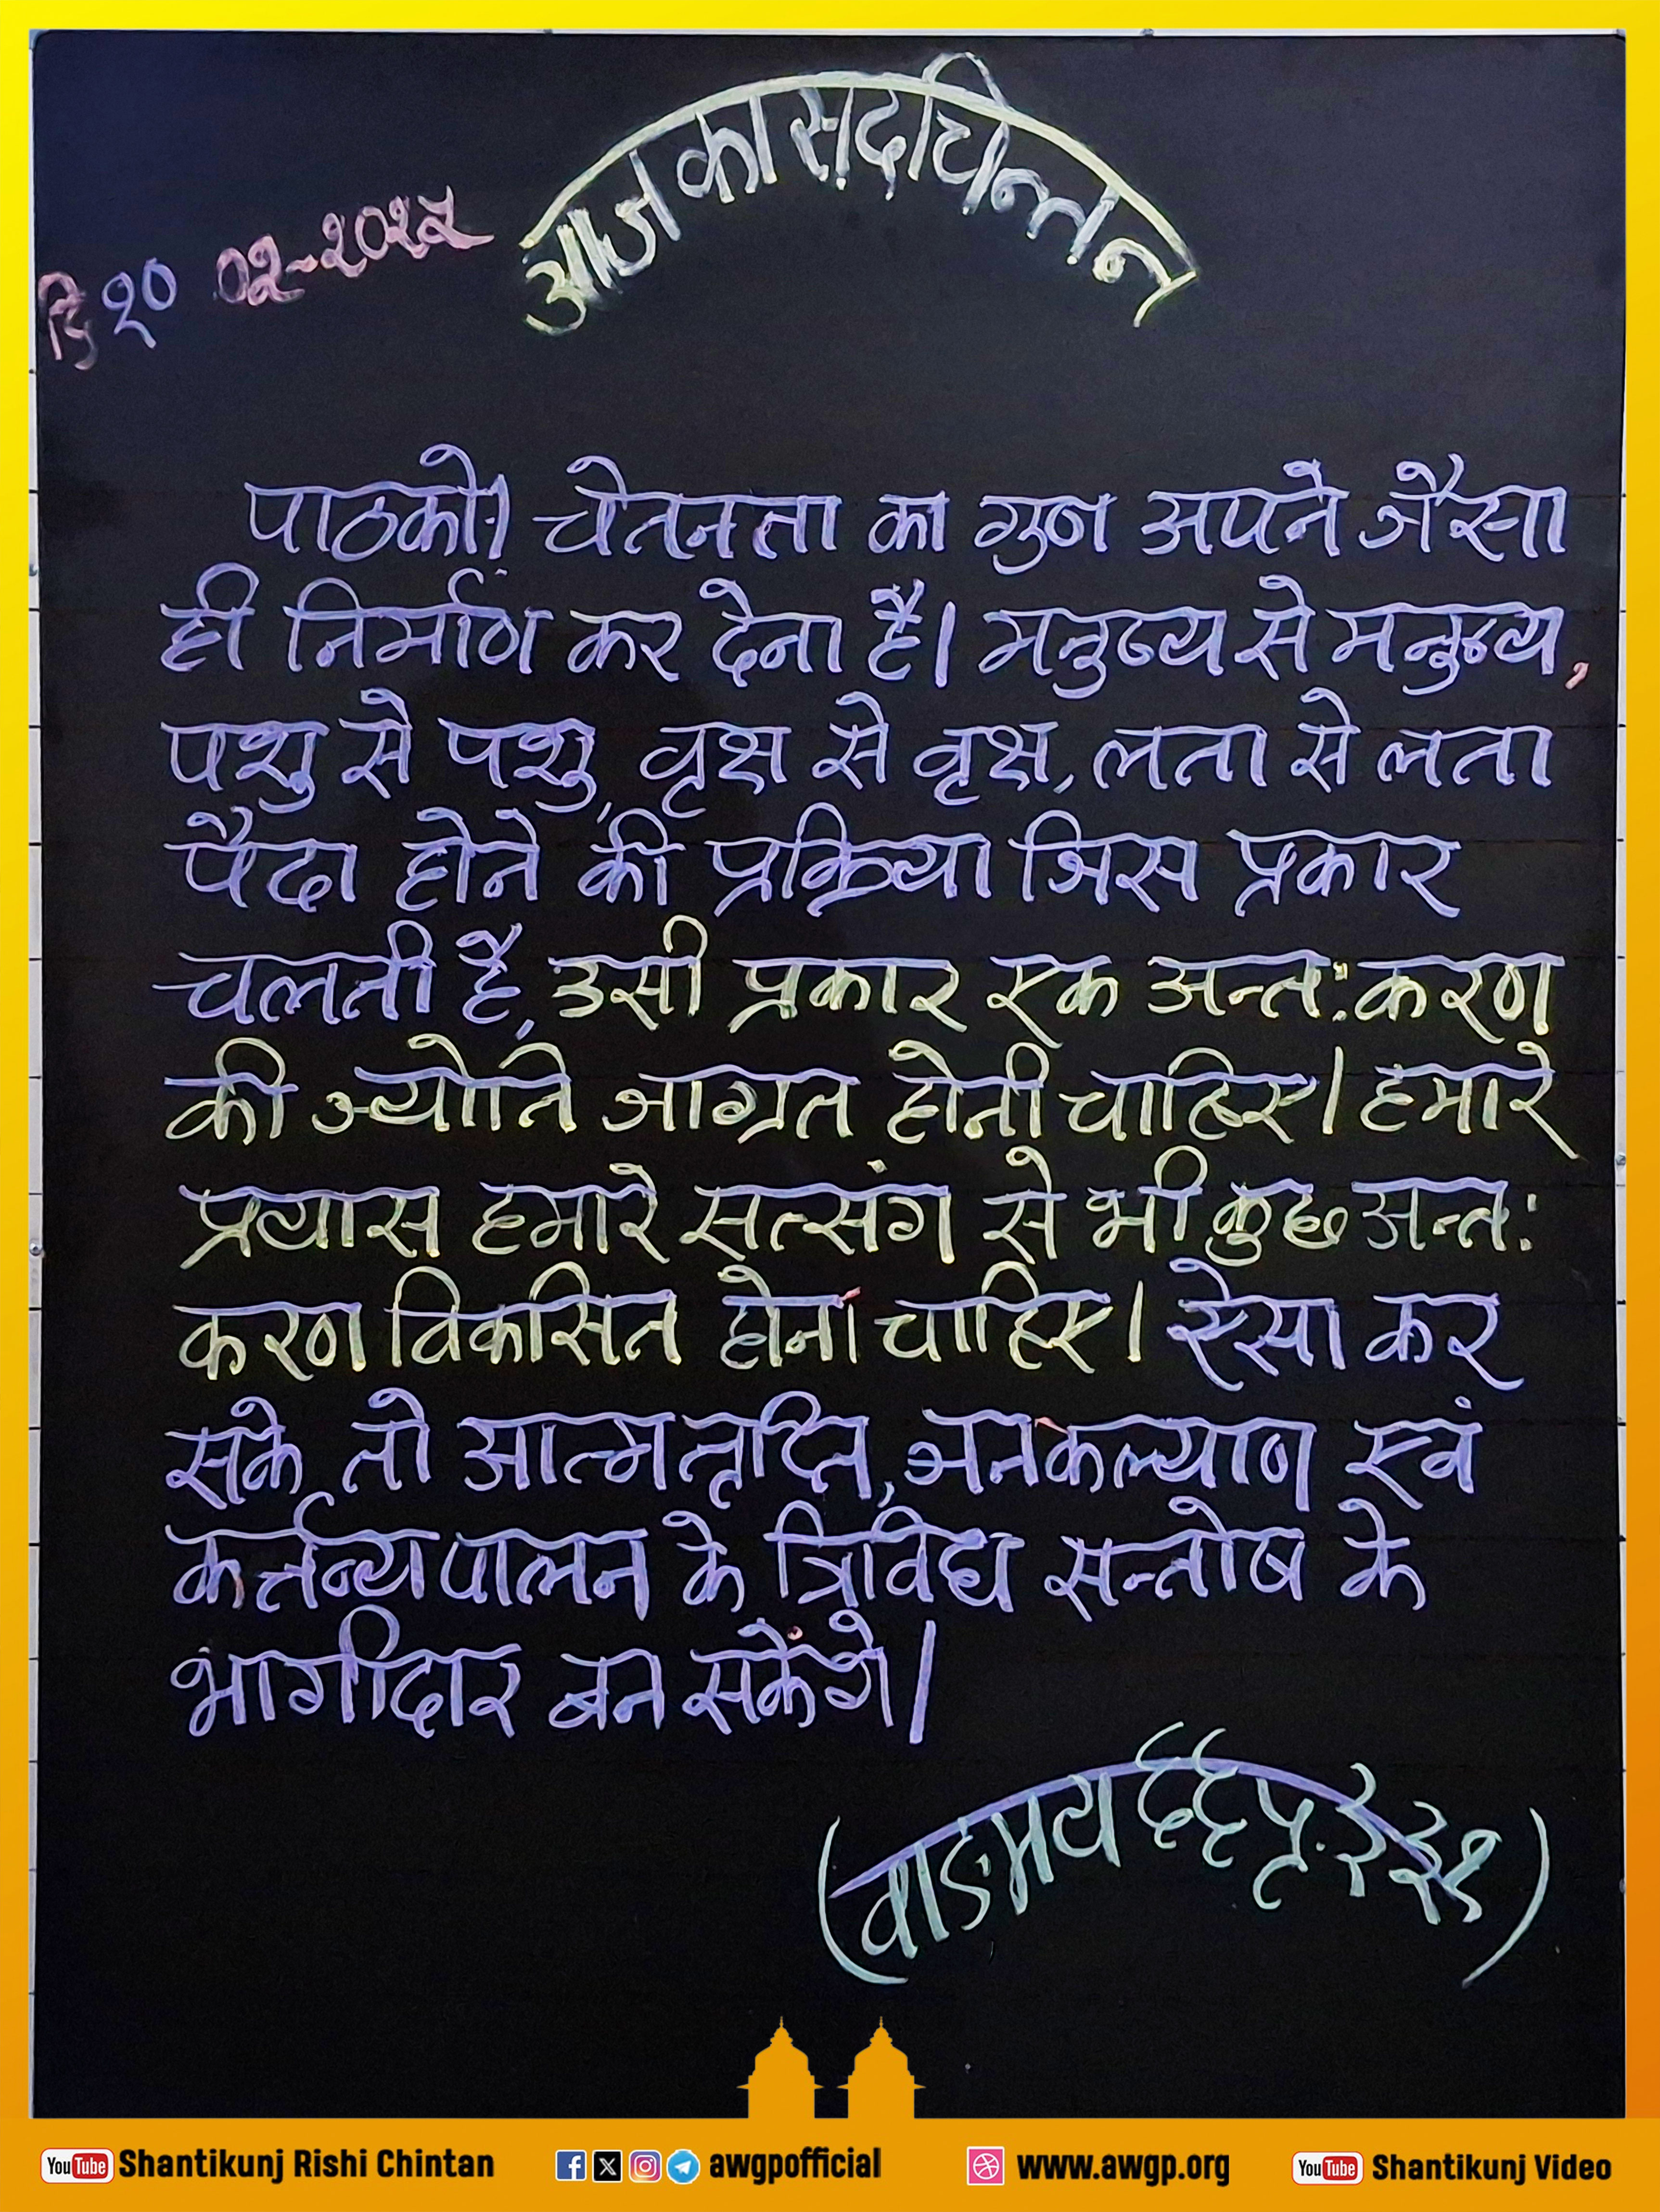 आज का सद्चिन्तन
दि १० ०२-२०२५
पाठको! चेतनता का गुण अपने जैसा
ही निर्माण कर देना है। मनुष्य से मनुष्य,
पशु से पशु, वृक्ष से वृक्ष, लता से लता
पैदा होने की प्रक्रिया जिस प्रकार
चलती है, उसी प्रकार एक अन्त:करण
की ज्योति जाग्रत होनी चाहिए। हमारे
प्रयास हमारे सत्संग से भी कुछ अन्त:
करण विकसित होना चाहिए। ऐसा कर
सके तो आत्मतृप्ति, जनकल्याण एवं
कर्त्तव्यपालन के त्रिविध सन्तोष के
भागीदार बन सकेंगे।
(वाङमय ६६ पृ. २३१)
YouTube Shantikunj Rishi Chintan awgpofficial www.awgp.org YouTube Shantikunj Video